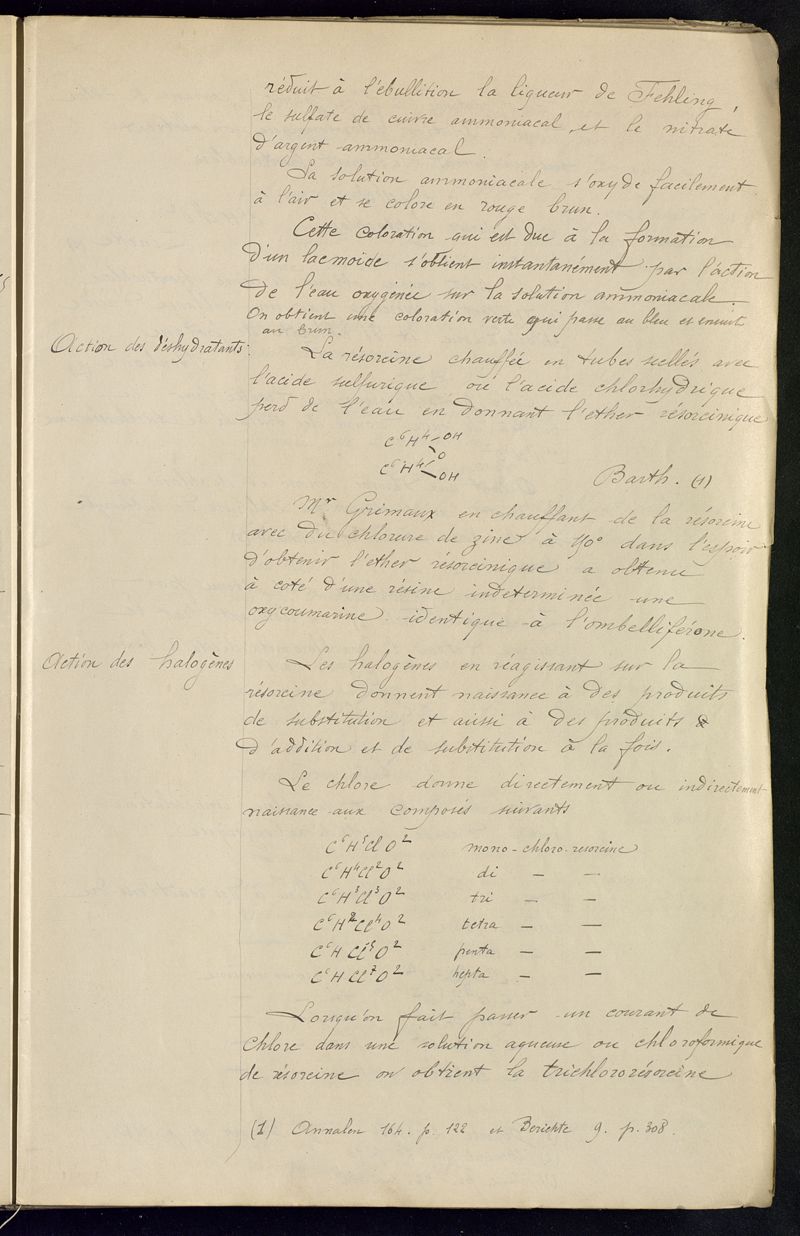 réduit à l'ébullition la liqueur de Fehling,
le sulfate de cuivre ammoniacal, et le nitrate
d'argent ammoniacal.
La solution ammoniacale s'oxyde facilement
à l'air et se colore en rouge brun.
Cette coloration qui est due à la formation
d'un lacmoïde s'obtient instantanément par l'action
de l'eau oxygénée sur la solution ammoniacale.
On obtient une coloration verte qui passe au bleu et ensuit
au brun.
Action des déshydratants.
La résorcine chauffée en tubes scellés avec
l'acide sulfurique ou l'acide chlorhydrique
perd de l'eau en donnant l'ether résorcinique
C⁶H⁴ OH
O
C⁶H⁴ OH
Barth. (1)
Mr Grimaux en chauffant de la résorcine
avec du chlorure de zinc à 140° dans l'espoir
d'obtenir l'ether résorcinique a obtenu
à coté d'une résine indeterminée une
oxycoumarine identique à l'ombelliférone.
Action des halogènes
Les halogènes en réagissant sur la
résorcine donnent naissance à des produits
de substitution et aussi à des produits
d'addition et de substitution à la fois.
Le chlore donne directement ou indirectement
naissance aux composés suivants
C⁶H⁵ClO² mono-chloro-resorcine
C⁶H⁴Cl²O² di — —
C⁶H³Cl³O² tri — —
C⁶H²Cl⁴O² tetra — —
C⁶HCl⁵O² penta — —
C⁶HCl⁷O² hepta — —
Lorsqu'on fait passer un courant de
chlore dans une solution aqueuse ou chloroformique
de résorcine on obtient la trichlororésorcine
(1) Annalen 164. p. 122 et Berichte 9. p. 308.